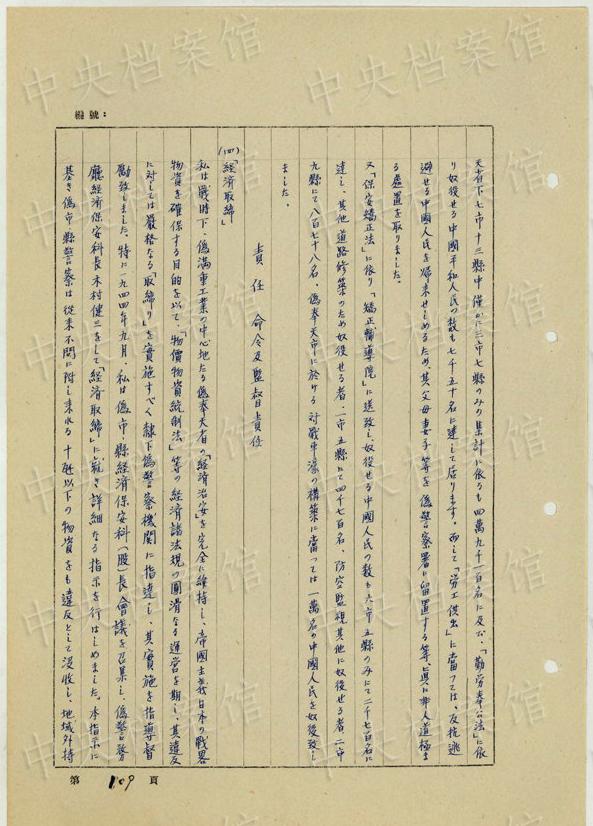 編號：
天省下七市十三縣中僅かに三市七縣のみの集計に依るも四萬九千一百名に及び、「勤労奉公法」に依
り奴役せる中國平和人民の数も七千五十名に達して居ります。而して「労工供出」に當つては、反抗逃
避せる中國人民を帰来せしめるため、其父母妻子等を偽警察署に留置する等真に非人道極ま
る處置を取りました。
又「保安矯正法」に依り「矯正輔導院」に送致し、奴役せる中國人民の数も六市五縣のみにて二千七百名に
達し、其他道路修築のため奴役せる者、一市五縣にて四千七百名、防空監視其他に奴役せる者、二市
九縣にて八百七十八名、偽奉天市に於ける対戰車濠の構築に當つては一萬名の中國人民を奴役致し
ました。
責任　命令及監督責任
(四)「経済取締」
私は戰時下、偽滿重工業の中心地たる偽奉天省の「経済治安」を完全に維持し、帝國主義日本の戰略
物資を確保する目的を以て、「物價物資統制法」等の経済諸法規の圓滑なる運営を期し、其違反
に対しては厳格なる「取締り」を實施すべく隷下偽警察機関に指達し、其實施を指導督
勵致しました。特に一九四四年九月、私は偽市・縣経済保安科(股)長会議を召集し、偽警務
廳経済保安科長木村健三をして「経済取締」に就き詳細なる指示を行はしめました。本指示に
基き偽市縣警察は従来不問に附し来れる十瓩以下の物資をも違反として没收し、地域外持
第 109 頁
中央档案馆